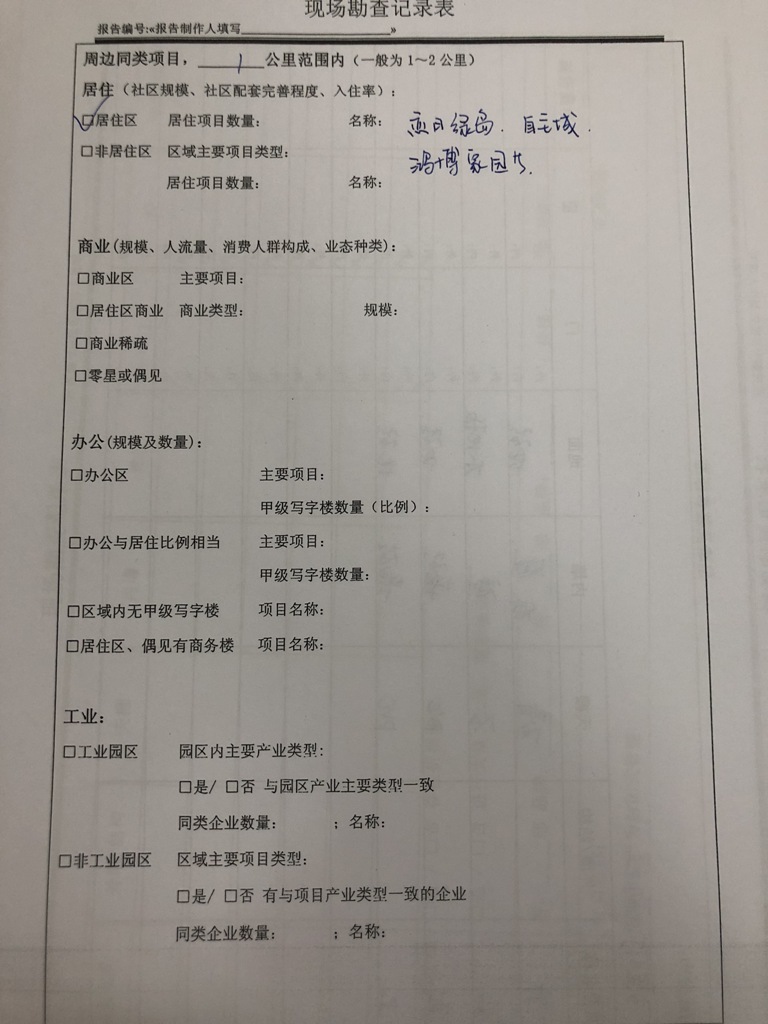 现场勘查记录表
报告编号:«报告制作人填写»
周边同类项目，1公里范围内（一般为 1～2 公里）
居住（社区规模、社区配套完善程度、入住率）：
☑居住区 居住项目数量： 名称： 恋日绿岛、自主城、
□非居住区 区域主要项目类型： 鸿博家园等.
居住项目数量： 名称：
商业(规模、人流量、消费人群构成、业态种类)：
□商业区 主要项目：
□居住区商业 商业类型： 规模：
□商业稀疏
□零星或偶见
办公(规模及数量)：
□办公区 主要项目：
甲级写字楼数量（比例）：
□办公与居住比例相当 主要项目：
甲级写字楼数量：
□区域内无甲级写字楼 项目名称：
□居住区、偶见有商务楼 项目名称：
工业：
□工业园区 园区内主要产业类型：
□是/ □否 与园区产业主要类型一致
同类企业数量： ；名称：
□非工业园区 区域主要项目类型：
□是/ □否 有与项目产业类型一致的企业
同类企业数量： ；名称：